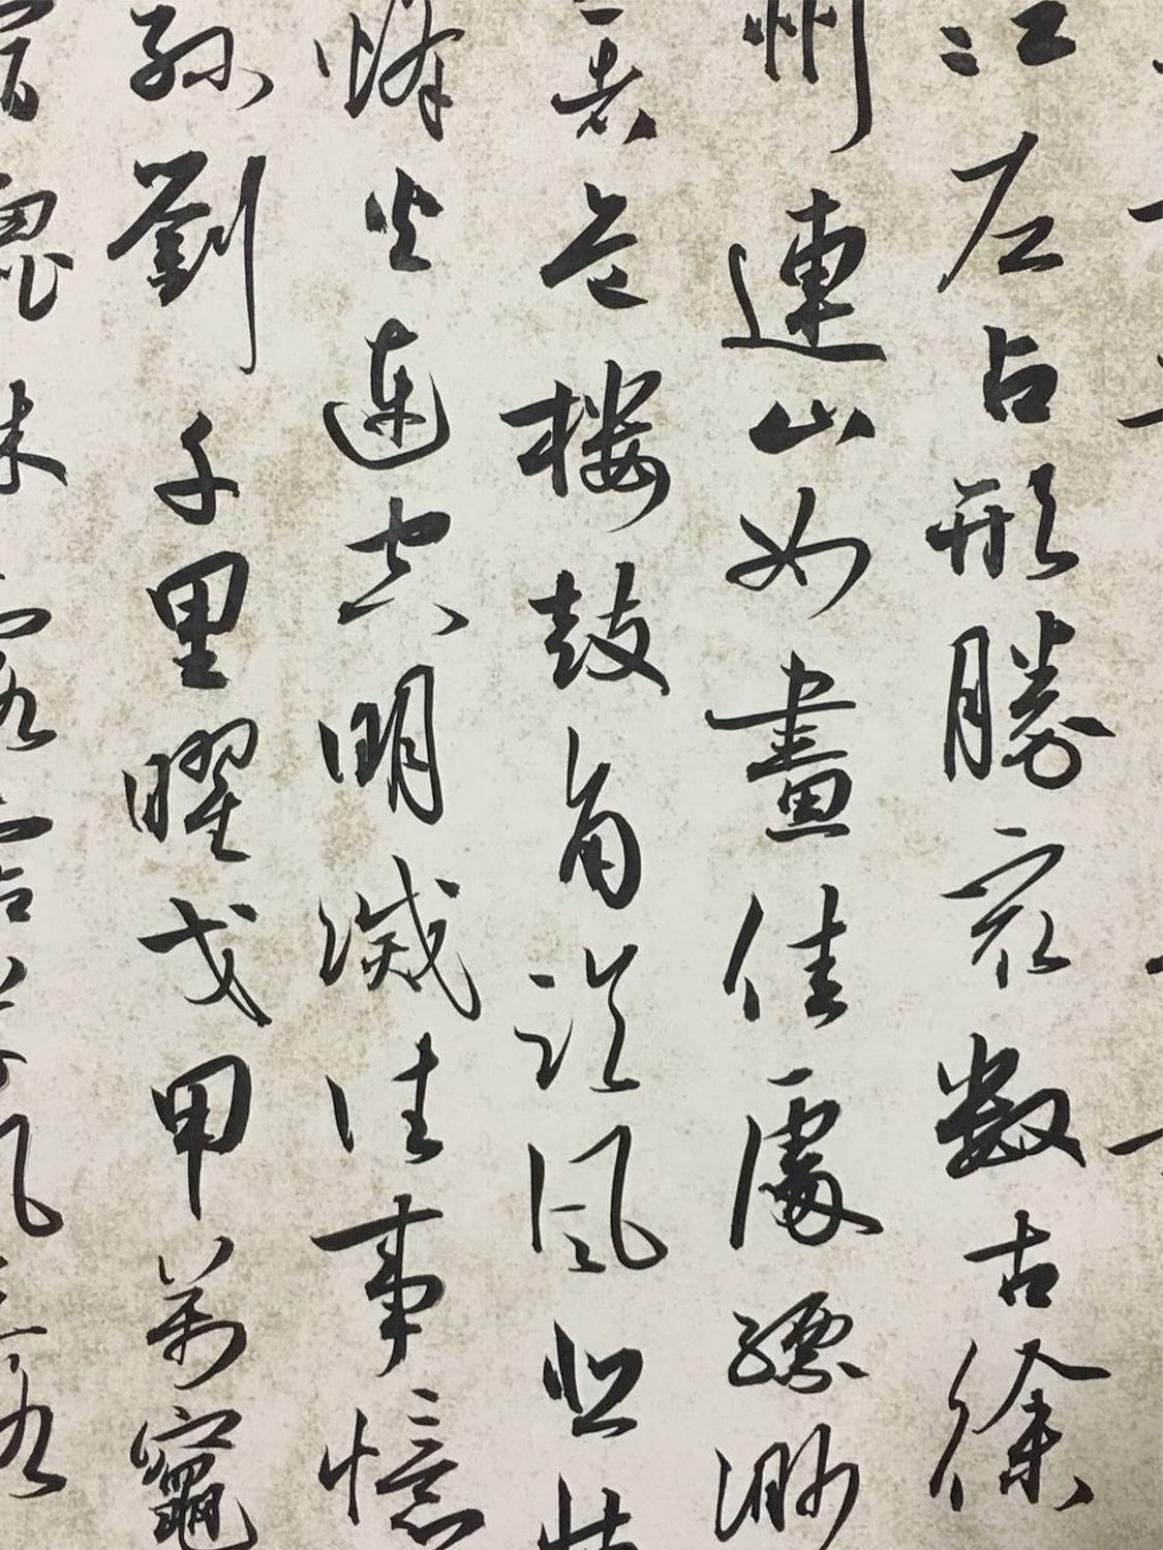 江左占形勝最數古徐
州連山如畫佳處縹渺
著危樓鼓角臨風悲壯
烽火連空明滅往事憶
孫劉千里曜戈甲萬竈